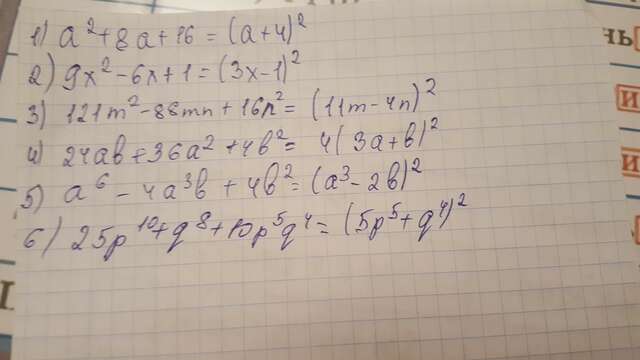 1) a² + 8a + 16 = (a+4)²
2) 9x² - 6x + 1 = (3x-1)²
3) 121m² - 88mn + 16n² = (11m-4n)²
4) 24ab + 36a² + 4b² = 4(3a+b)²
5) a⁶ - 4a³b + 4b² = (a³-2b)²
6) 25p¹⁰ + q⁸ + 10p⁵q⁴ = (5p⁵+q⁴)²